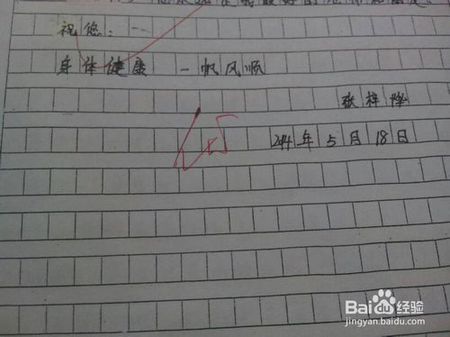 祝您：
身体健康 一帆风顺
张梓隆
2014年5月18日
Baidu经验
jingyan.baidu.com